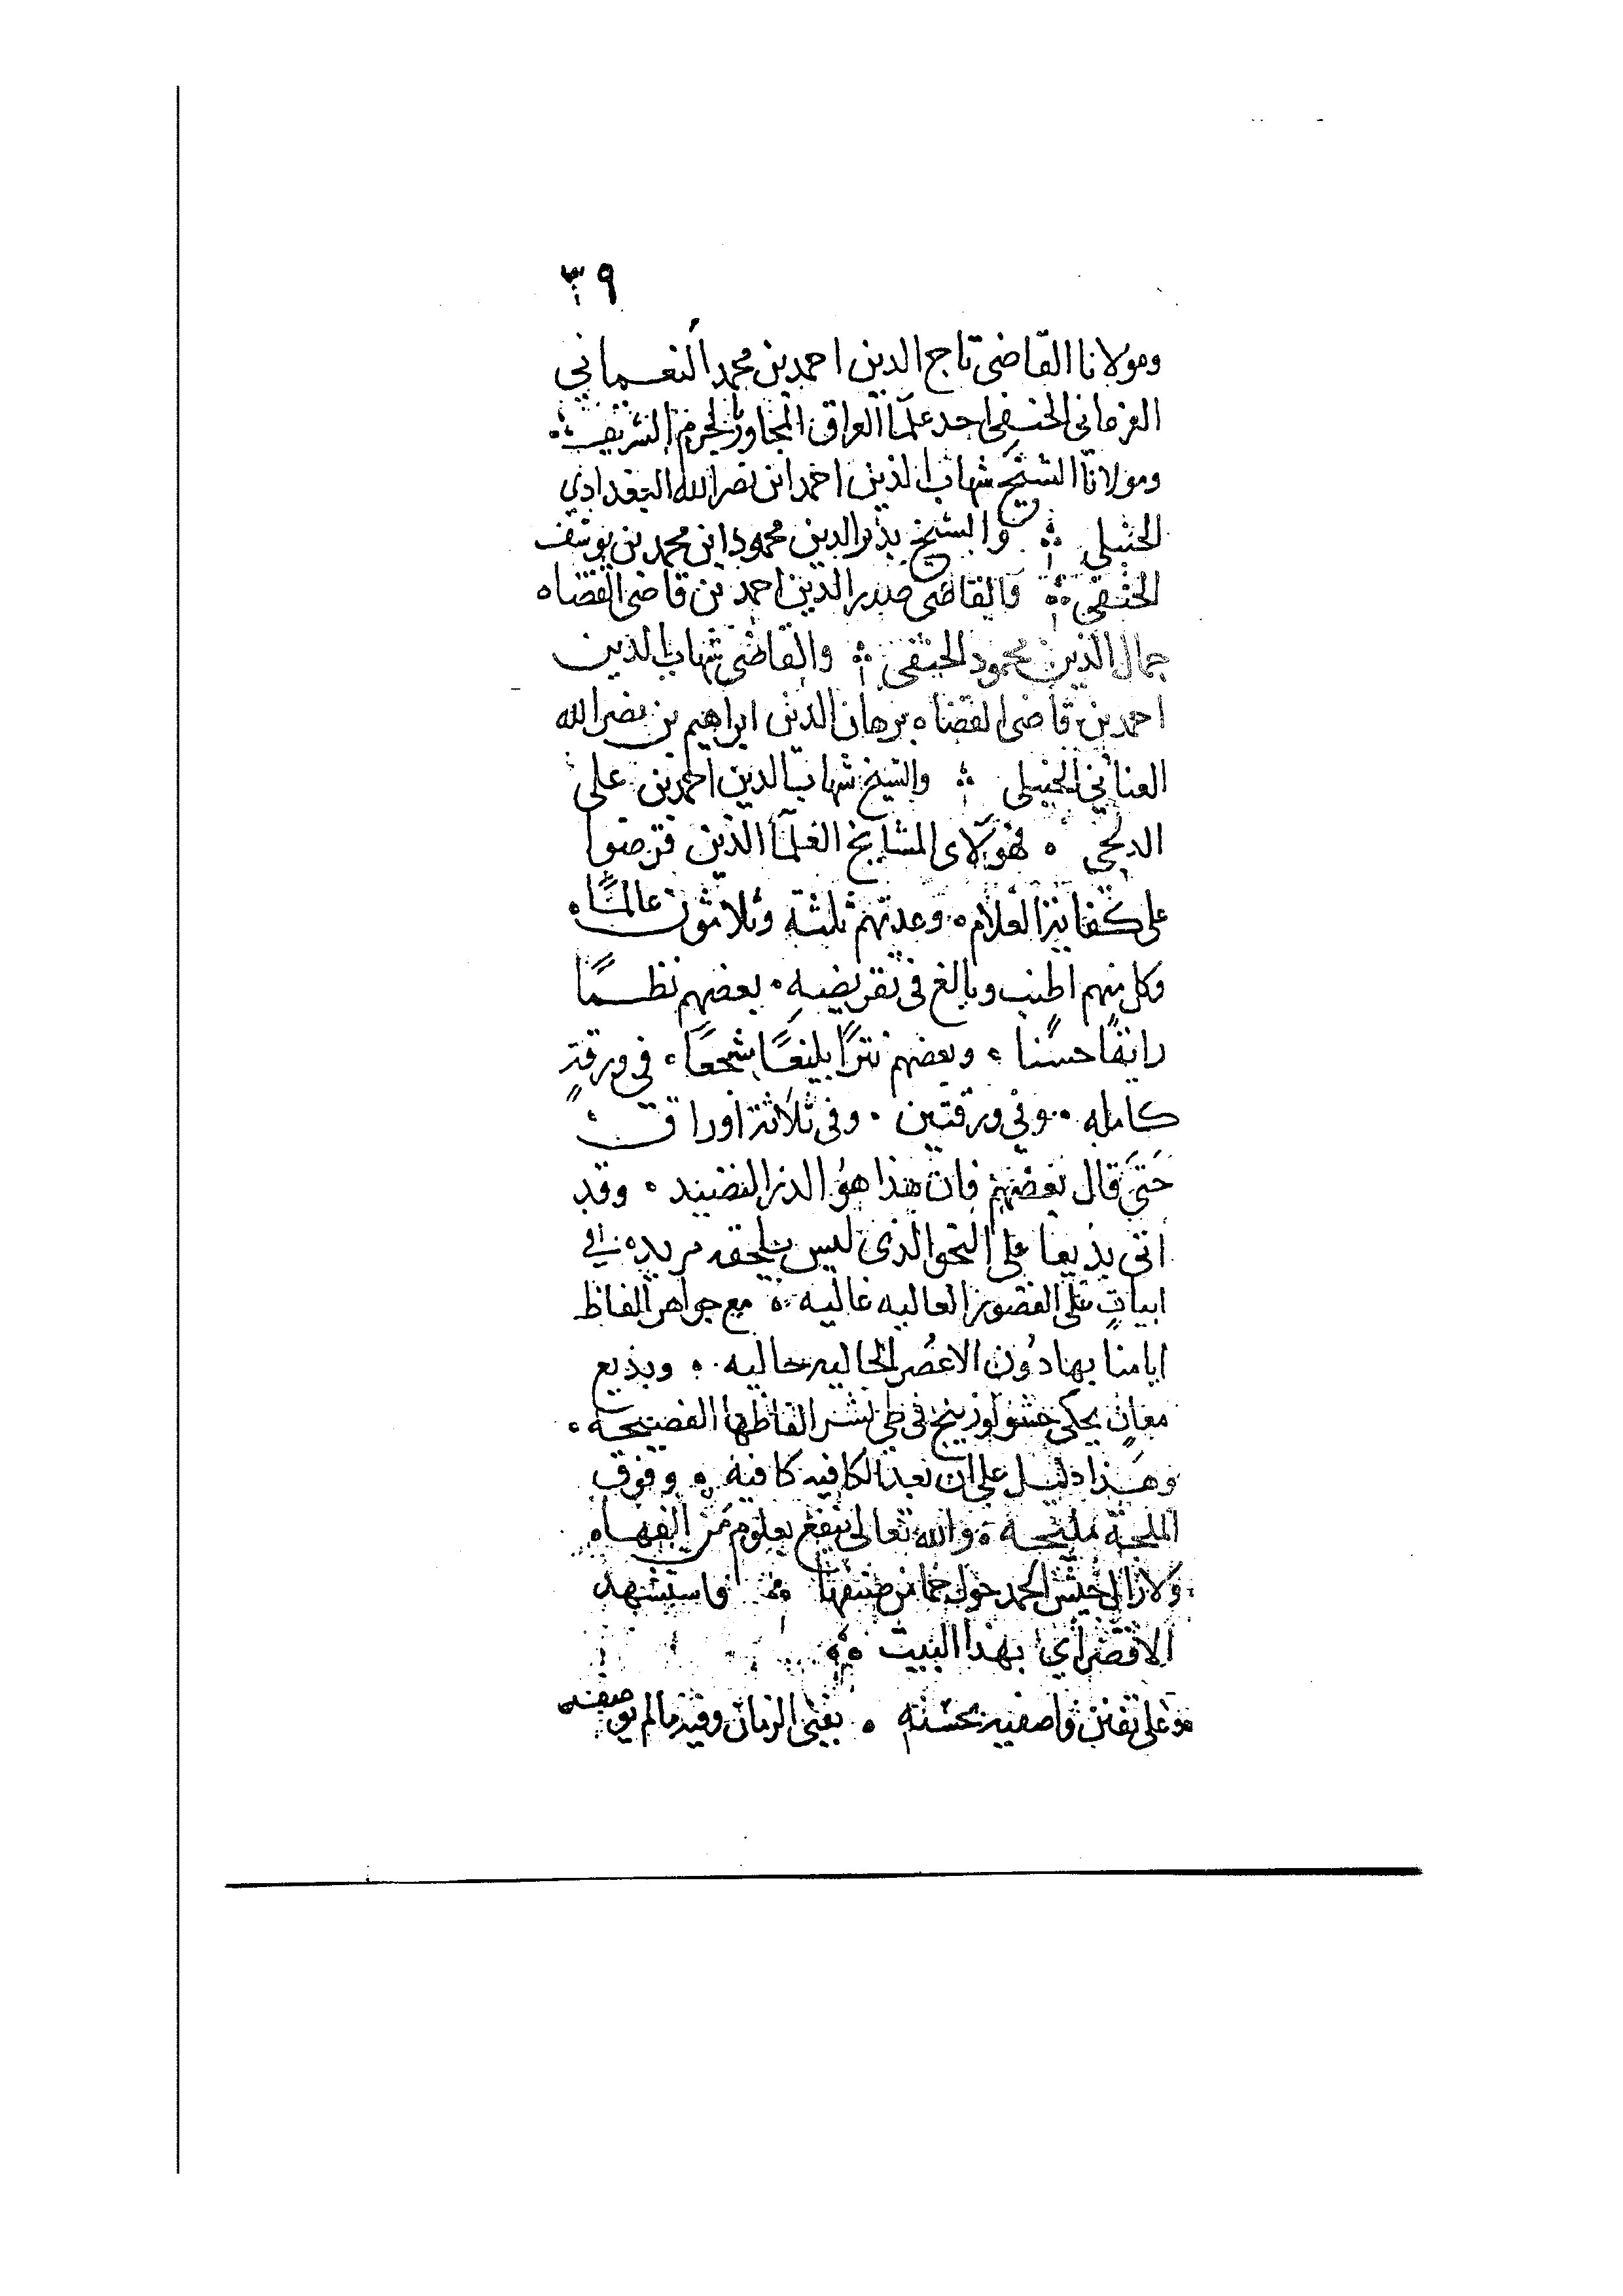 ٣٩
ومولانا القاضى تاج الدين احمد بن محمد النعماني
الفرغانى الحنفى احد علمآ العراق المجاور للحرم الشريف
ومولانا الشيخ شهاب الدين احمد ابن نصر الله البغدادي
الحنبلي والشيخ بدر الدين محمود ابن محمد بن يوسف
الحنفى والقاضى صدر الدين احمد بن قاضى القضاه
جمال الدين محمود الحنفى والقاضى شهاب الدين
احمد بن قاضى القضاه برهان الدين ابراهيم بن نصر الله
العناني الحنبلى والشيخ شهاب الدين احمد بن على
الدلجي فهولآى المشايخ العلمآ الذين قرضوا
على كفاية العلام وعدتهم ثلثة وثلاثون عالمًا
وكل منهم اطنب وبالغ فى تقريضه بعضهم نظمًا
رايقًا حسنًا وبعضهم نثرًا بليغًا سجعًا فى ورقةٍ
كامله وفى ورقتين وفى ثلاثة اوراق
حتى قال بعضهم فان هذا هو الدر النضيد وقد
اتى بديعا على النحو الذى ليس يلحقه مريد فى
ابياتٍ على القصور العاليه غاليه مع جواهر الفاظ
ايامنا بها دون الاعصر الخاليه حاليه وبديع
معانٍ يحكى حشو لوزينج فى طي نشر الفاظها الفصيحه
وهذا دليل على ان بعد الكافيه كافية وفوق
الملحة مليحه والله تعالى ينفع بعلوم من الفها
ولا زال جيش الحمد حول حما من صنفها واستشهد
الاقصراي بهذا البيت
وعلى تفنن واصفيه بحسنه يفنى الزمان وفيه مالم يوصف